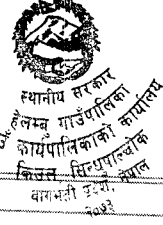 स्थानीय सरकार
हेलम्बु गाउँपालिका
गाउँ कार्यपालिकाको कार्यालय
किउल, सिन्धुपाल्चोक
बागमती प्रदेश, नेपाल
२०७३